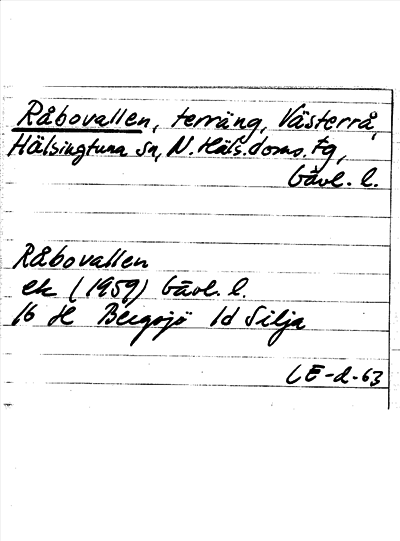 Råbovallen, terräng, Västerrå,
Hälsingtuna sn, N. Häls. doms. tg,
Gävl. l.
Råbovallen
ek (1959) Gävl. l.
16 H Bergsjö 1d Silja
LE-d-63